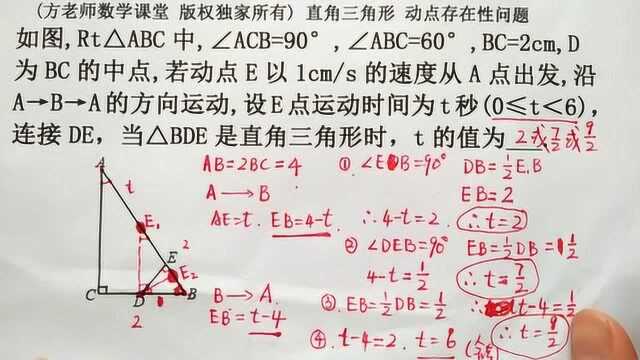 (方老师数学课堂 版权独家所有) 直角三角形 动点存在性问题
如图,Rt△ABC 中,∠ACB=90°,∠ABC=60°,BC=2cm,D
为 BC 的中点,若动点 E 以 1cm/s 的速度从 A 点出发,沿
A→B→A的方向运动,设E点运动时间为t秒(0≤t<6),
连接 DE, 当△BDE 是直角三角形时, t 的值为 2或7/2或9/2
A
t
E₁
2
E
E₂
C
D
B
1
2
AB=2BC=4
A→B
AE=t. EB=4-t.
B→A.
EB=t-4
① ∠EDB=90° DB=1/2EB
EB=2
∴4-t=2. ∴t=2
② ∠DEB=90° EB=1/2DB=1/2
4-t=1/2 ∴t=7/2
③. EB=1/2DB=1/2 ∴t-4=1/2
∴t=9/2
④. t-4=2. t=6 (舍)